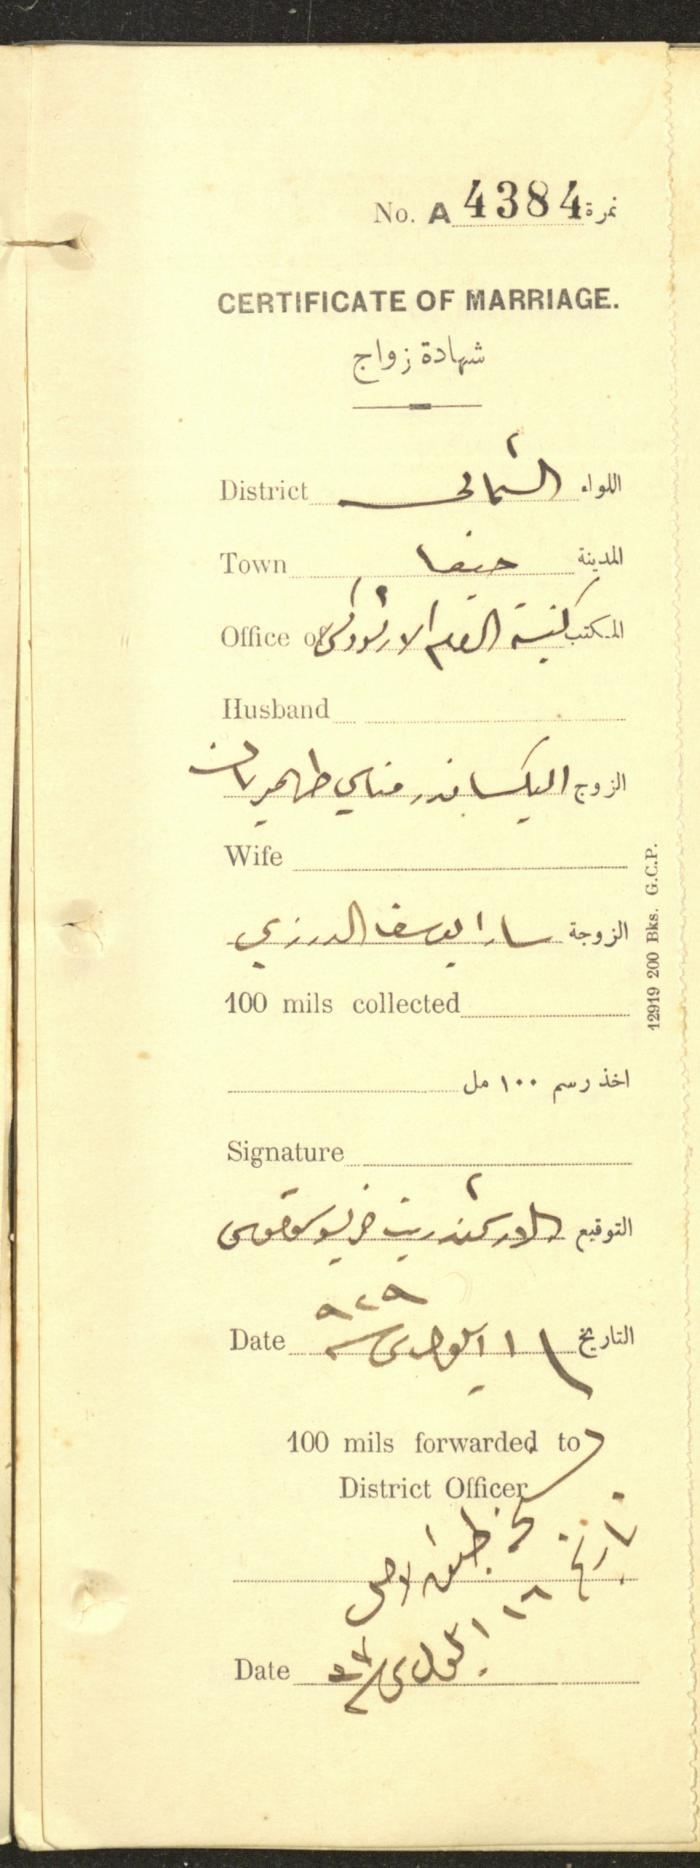 No. A 4384 نمرة
CERTIFICATE OF MARRIAGE.
شهادة زواج
District الشمالي اللواء
Town حيفا المدينة
Office of كنيسة الروم الارثوذكس المكتب
Husband
الزوج اليكساندر
Wife
الزوجة سارا يوسف الدرزي
100 mils collected
اخذ رسم ١٠٠ مل
Signature
التوقيع الارشمندريت
Date ١١ ايلول ٩٢٩ التاريخ
100 mils forwarded to
District Officer
تاريخ
Date ١٦ ايلول
12919 200 Bks. G.C.P.